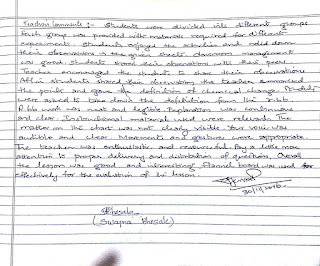 Teachers Comments :- Students were divided into different groups
Each group was provided with materials required for different
experiments. Students enjoyed the activities and noted down
their observations in the given sheets. Classroom management
was good. Students shared their observations with their peers
Teacher encouraged the students to share their observations
After students shared their observation the teacher summarised
the points and gave the definition of chemical change. Students
were asked to take down the definition from the b.b.
B.bb work was neat and legible. Explanation was
and clear. Instructional material used were relevant. The
matter on the chart was not clearly visible. Your voice was
audible and clear. Movements and gestures were appropriate
The teacher was enthusiastic and resourceful. Pay a little more
attention to proper delivery and distribution of questions. Overall
the lesson was good and interesting. Flannel board was used
effectively for the evaluation of the lesson.
30/11/2016
Bhosale
(Swapna Bhosale)